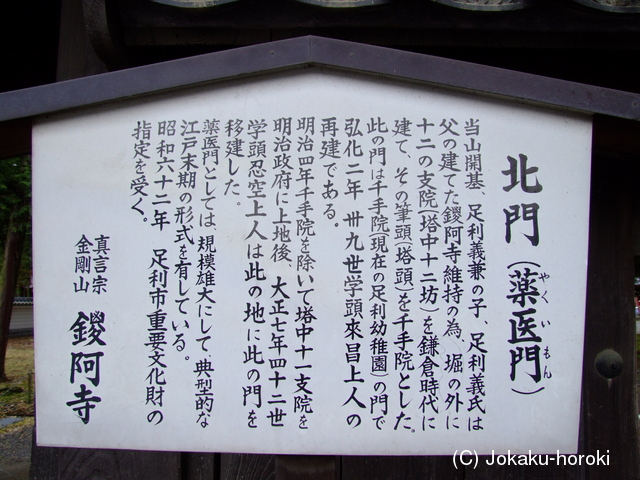 北門(薬医門)
やくいもん
当山開基、足利義兼の子、足利義氏は
父の建てた鑁阿寺維持の為、堀の外に
十二の支院(塔中十二坊)を鎌倉時代に
建て、その筆頭(塔頭)を千手院とした。
此の門は千手院(現在の足利幼稚園)の門で
弘化二年 卅九世学頭來昌上人の
再建である。
明治四年千手院を除いて塔中十一支院を
明治政府に上地後、大正七年四十二世
学頭忍空上人は此の地に此の門を
移建した。
薬医門としては、規模雄大にして、典型的な
江戸末期の形式を有している。
昭和六十二年 足利市重要文化財の
指定を受く。
真言宗
金剛山 鑁阿寺
(C) Jokaku-horoki